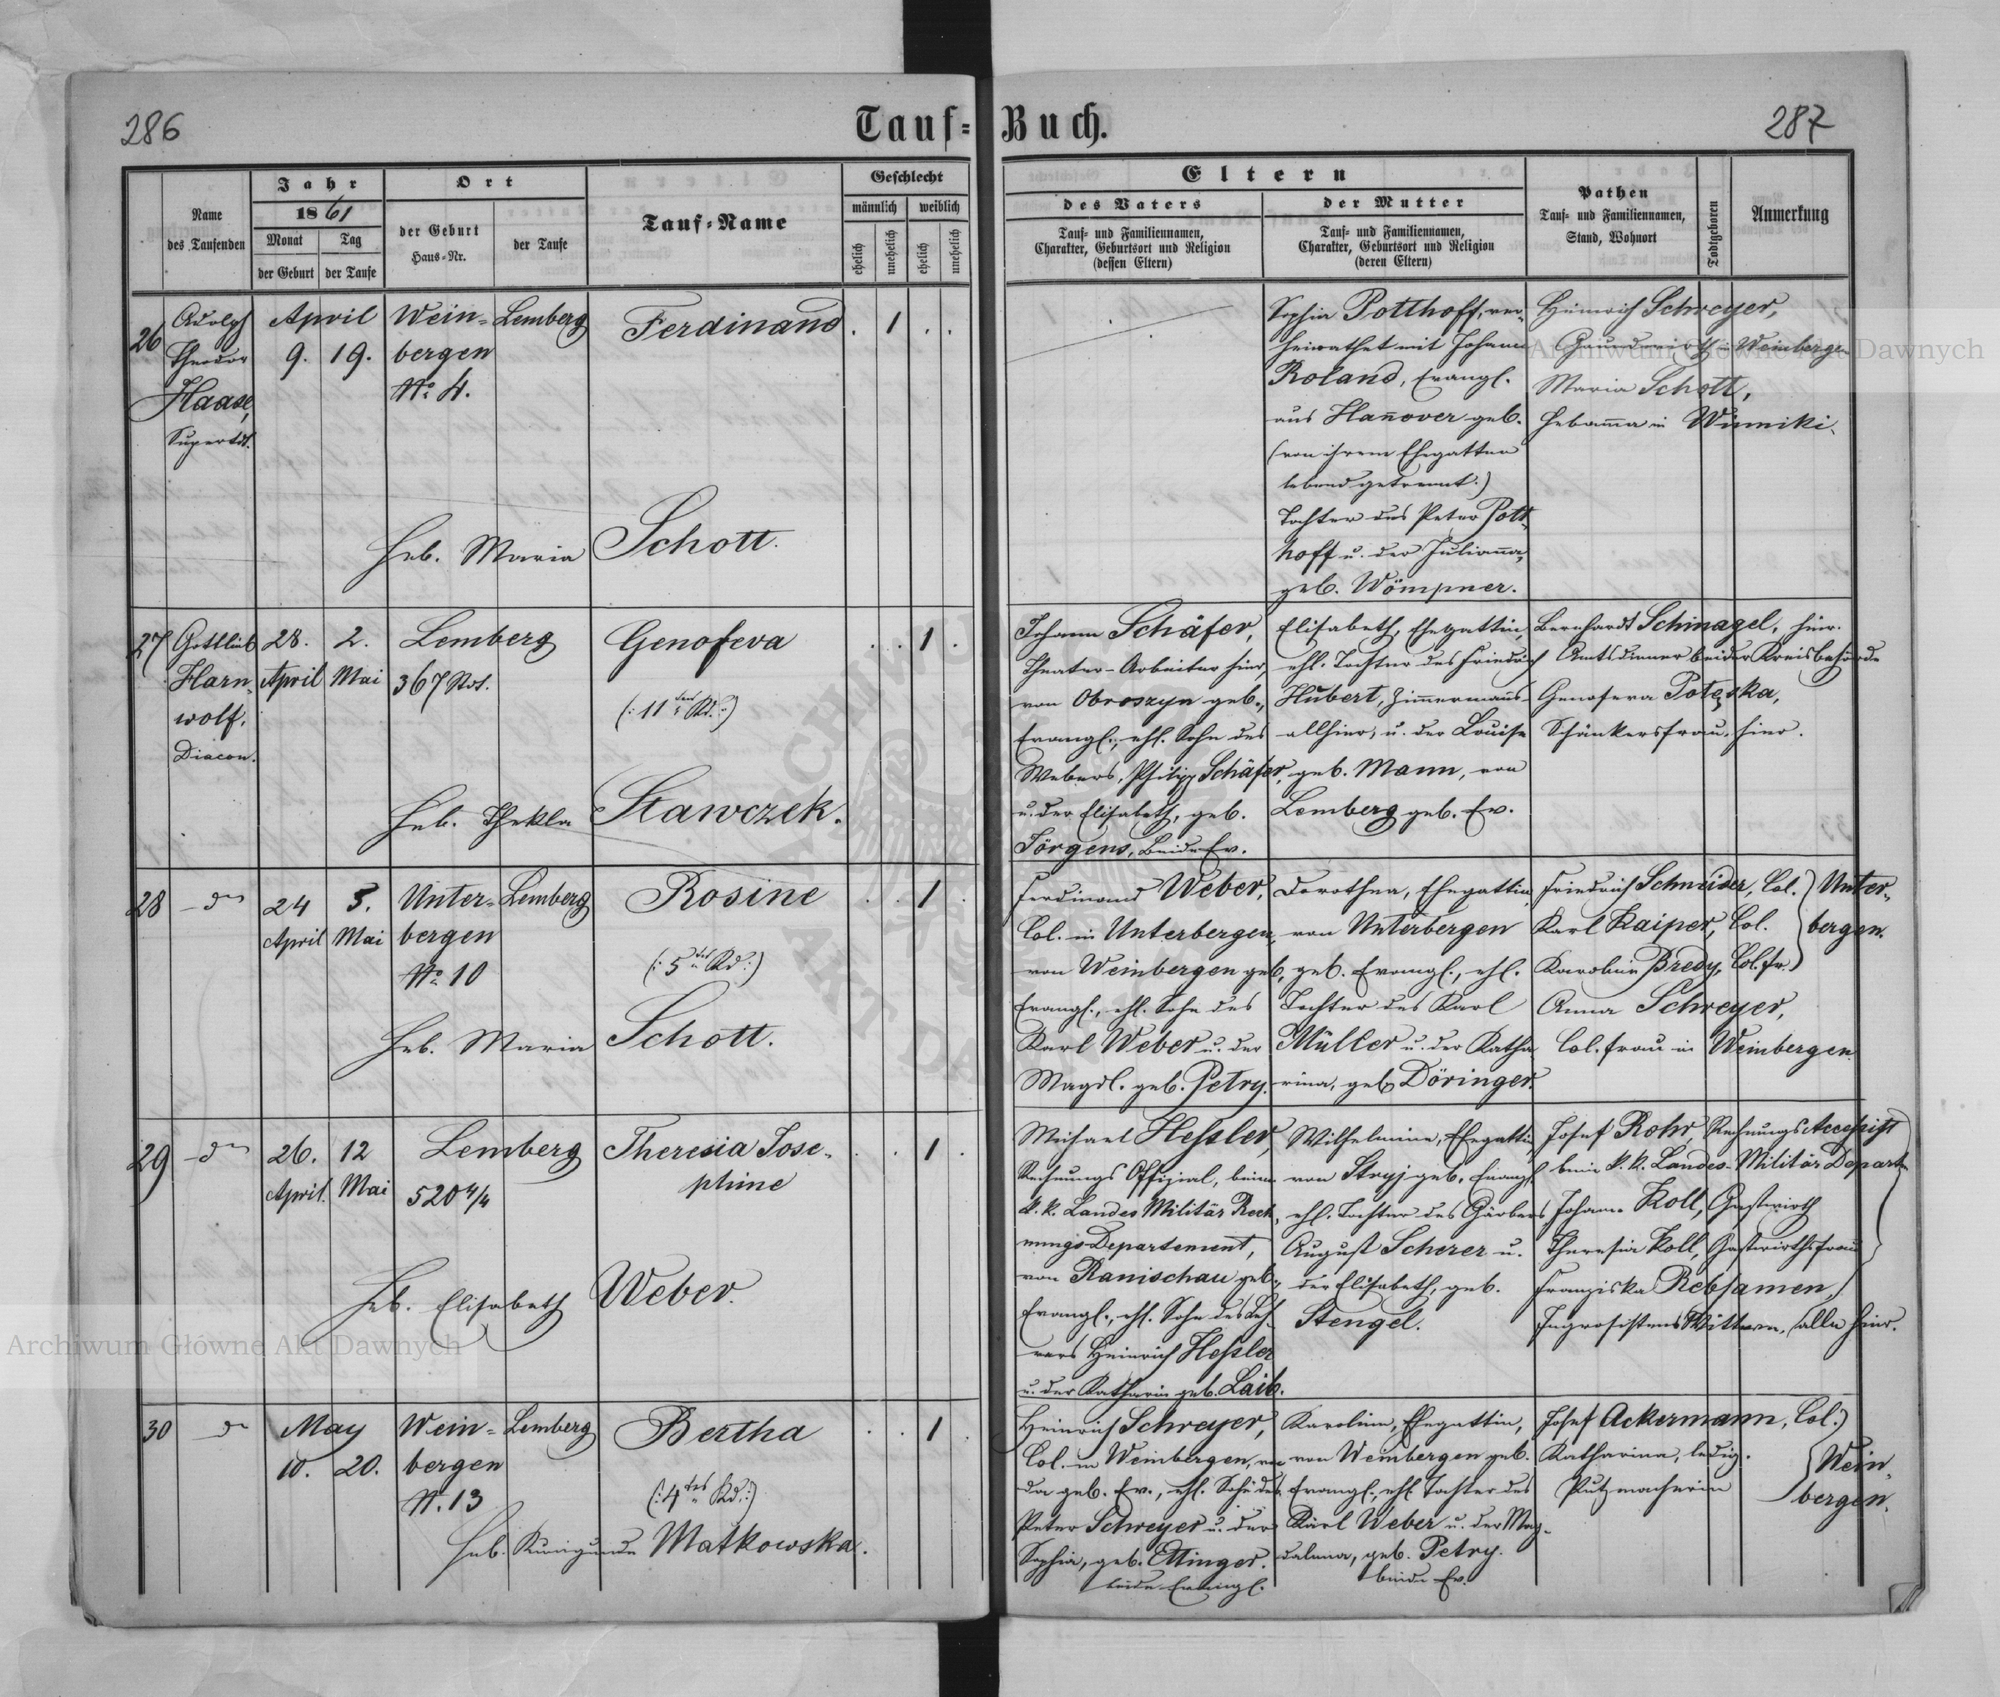 286
Tauf=
Buch.
287
Name
des Taufenden
Jahr
1861
Monat
der Geburt
Tag
der Taufe
Ort
der Geburt
Haus=Nr.
der Taufe
Tauf=Name
Geschlecht
männlich
weiblich
ehelich
unehelich
ehelich
unehelich
Eltern
des Vaters
Tauf= und Familiennamen,
Charakter, Geburtsort und Religion
(dessen Eltern)
der Mutter
Tauf= und Familiennamen,
Charakter, Geburtsort und Religion
(deren Eltern)
Pathen
Tauf= und Familiennamen,
Stand, Wohnort
Todtgeboren
Anmerkung
26
Adolph
Theodor
Haase,
Superdt.
April
9. 19.
Wein=
bergen
No. 4.
Lemberg
Ferdinand
. 1 . .
Heb. Maria Schott.
Sophia Potthoff, ver=
heirathet mit Johann
Roland, Evangl.
aus Hannover geb.
(von ihrem Ehegatten
lebend getrennt.)
Tochter des Peter Pott=
hoff u. der Julianna,
geb. Wömpner.
Heinrich Schreyer,
Grundwirth in Weinbergen
Maria Schott,
Hebamme in Winniki.
27
Gottlieb
Harn=
wolf.
Diacon.
28.
April
2.
Mai
Lemberg
367 Std.
Genofeva
(: 11tes Kd. :)
. . 1 .
Heb. Thekla Stawczek.
Johann Schäfer,
Theater-Arbeiter hier,
von Obroszyn geb.,
Evangl., ehl. Sohn des
Webers, Philipp Schäfer,
u. der Elisabeth, geb.
Jörgens, beide Ev.
Elisabeth, Ehegattin,
ehl. Tochter des Friedrich
Hubert, Zimmermanns
allhier, u. der Louise
geb. Mann, von
Lemberg geb. Ev.
Bernhardt Schinagel, hier.
Amtsdiener bei der Kreisbehörde
Genofeva Potocka,
Schänkersfrau, hier.
28
24
April
5.
Mai
Unter=
bergen
No. 10
Lemberg
Rosine
(: 5tes Kd. :)
. . 1 .
Heb. Maria Schott.
Ferdinand Weber,
Col. in Unterbergen,
von Weinbergen geb.,
Evangl., ehl. Sohn des
Karl Weber u. der
Magdl. geb. Petry.
Dorothea, Ehegattin,
von Unterbergen
geb. Evangl., ehl.
Tochter des Karl
Müller u. der Katha=
rina, geb. Döringer.
Friedrich Schneider, Col.
Karl Kaiper, Col.
Karoline Bredy, Col. fr.
Unter=
bergen.
Anna Schreyer,
Col. frau in Weinbergen.
29
26.
April.
12
Mai
Lemberg
520 4/4
Theresia Jose=
phine
. . 1 .
Heb. Elisabeth Weber.
Michael Hessler,
Rechnungs Offizial, beim
k. k. Landes Militär Rech=
nungs-Departement,
von Ranischau geb.,
Evangl., ehl. Sohn des Leh=
rers Heinrich Hessler
u. der Katharin geb. Laib.
Wilhelmine, Ehegattin,
von Stryj geb. Evangl.
ehl. Tochter des Gärbers
August Scherer u.
der Elisabeth, geb.
Stengel.
Josef Rohr, Rechnungs Accessist
beim k. k. Landes-Militär Depart.
Johann Koll, Gastwirth
Theresia Koll, Gastwirthsfrau
Franziska Rebsamen,
Ingrosistens Wittwe, alle hier.
30
May
10. 20.
Wein=
bergen
N. 13
Lemberg
Bertha
(: 4tes Kd. :)
. . 1 .
Heb. Kunigunde Matkowska.
Heinrich Schreyer,
Col. in Weinbergen, von
da geb. Ev., ehl. Sohn des
Peter Schreyer u. der
Sophia, geb. Ettinger.
beide Evangl.
Karoline, Ehegattin,
von Weinbergen geb.
Evangl., ehl. Tochter des
Karl Weber u. der Mag=
dalena, geb. Petry.
beide Ev.
Josef Ackermann, Col.
Katharina, ledig.
Putzmacherin
Wein=
bergen.
Archiwum Główne Akt Dawnych
Archiwum Główne Akt Dawnych